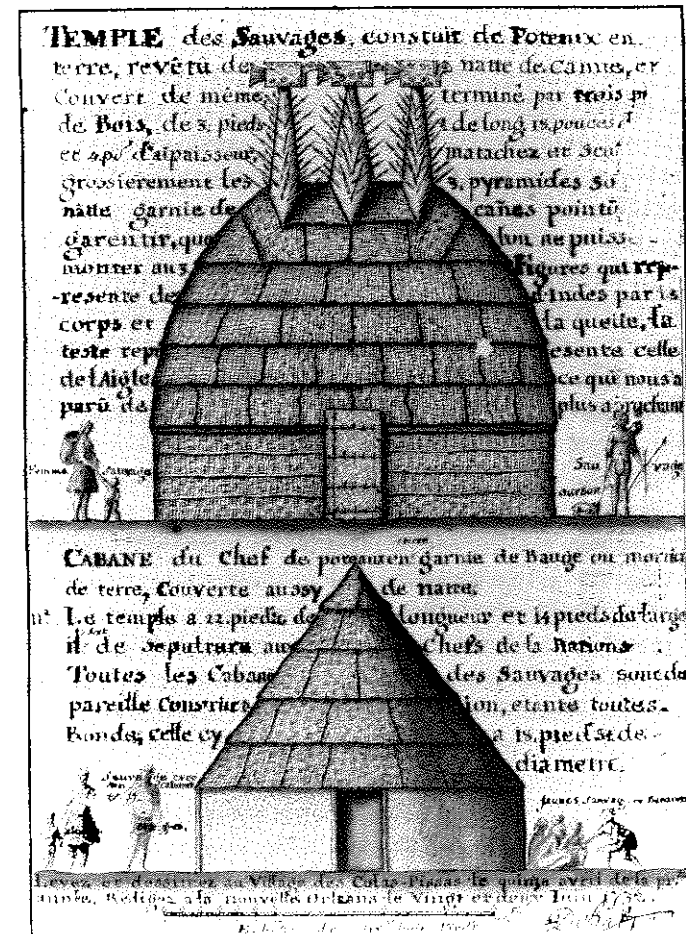 TEMPLE des Sauvages, constuit de Poteaux en
terre, revêtu de natte de Cannes, et
Couvert de même, terminé par trois pi
de Bois, de 3. pieds de long 18. pouces
et 4 po d'aipaisseur, matachez et Scul
grossierement les s, pyramides so
natte garnie de cañes pointü
garentir, que lon ne puisse
monter aux figures qui rep-
-resente de d'Indes par le
corps et la queüe, la
teste rep esente celle
de l'Aigle ce qui nous a
parû de plus aprochant
Femme Sauvage
Sau vage
CABANE du Chef de poteaux en garnie de Bauge ou mortier
de terre, Couverte aussy de natte.
Le temple a 22. pieds de longueur et 14 pieds de large
il sert de sepulture aux Chefs de la Nations
Toutes les Cabane des Sauvages sont de
pareille Construct ion, etente toutes.
Ronde, celle cy a 18. pieds de
diametre.
Levez et dessinez au Village des Colas-Pissas le quinze avril de la pr.
année, Redigez a la nouvelle Orleans le Vingt et deux Juin 1732.